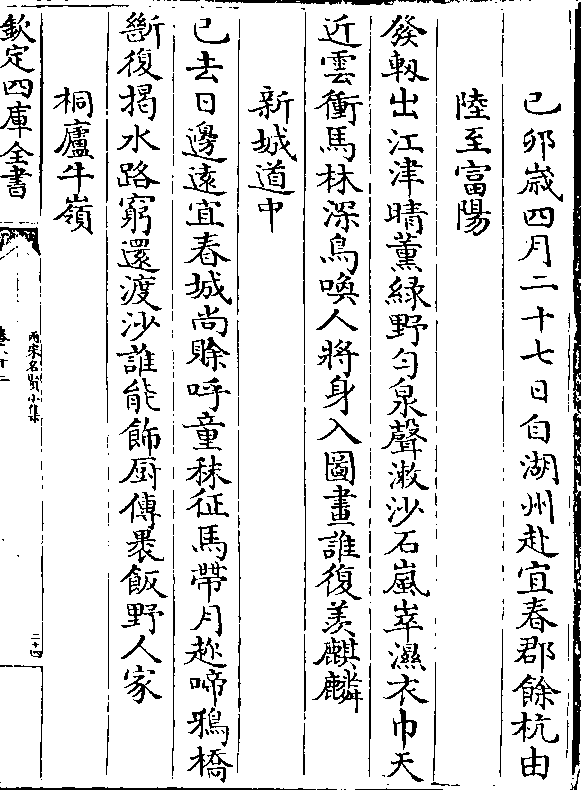 己卯歳四月二十七日自湖州赴宜春郡餘杭由
陸至富陽
發軔出江津晴薰緑野匀泉聲漱沙石嵐翠濕衣巾天
近雲衝馬林深鳥喚人將身入圖畫誰復羡麒麟
新城道中
已去日邊遠宜春城尚賖呼童秣征馬帶月趂啼鴉橋
斷復揭水路窮還渡沙誰能飾厨傳裹飯野人家
桐廬牛嶺
欽定四庫全書
兩宋名賢小集
二十四